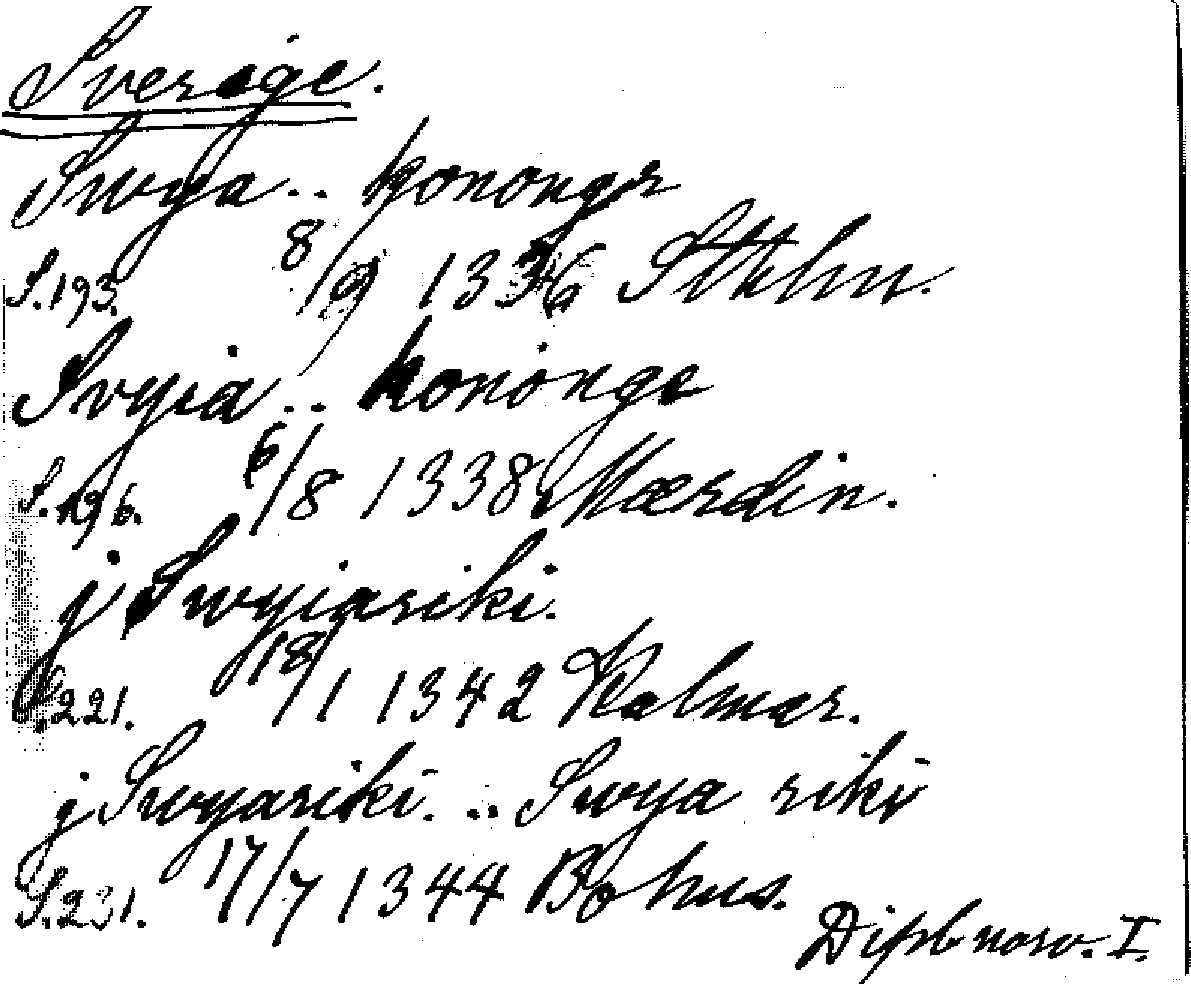 Sverige.
Swya .. konongr
S. 193. 8/9 1336 Sthlm.
Svyia .. konongr
S. 196. 6/8 1338 Værdin.
j Swyiariki.
S. 221. 18/1 1342 Kalmar.
j Swyariki. .. Swya riki
S. 231. 17/7 1344 Bohus.
Dipl. norv. I.